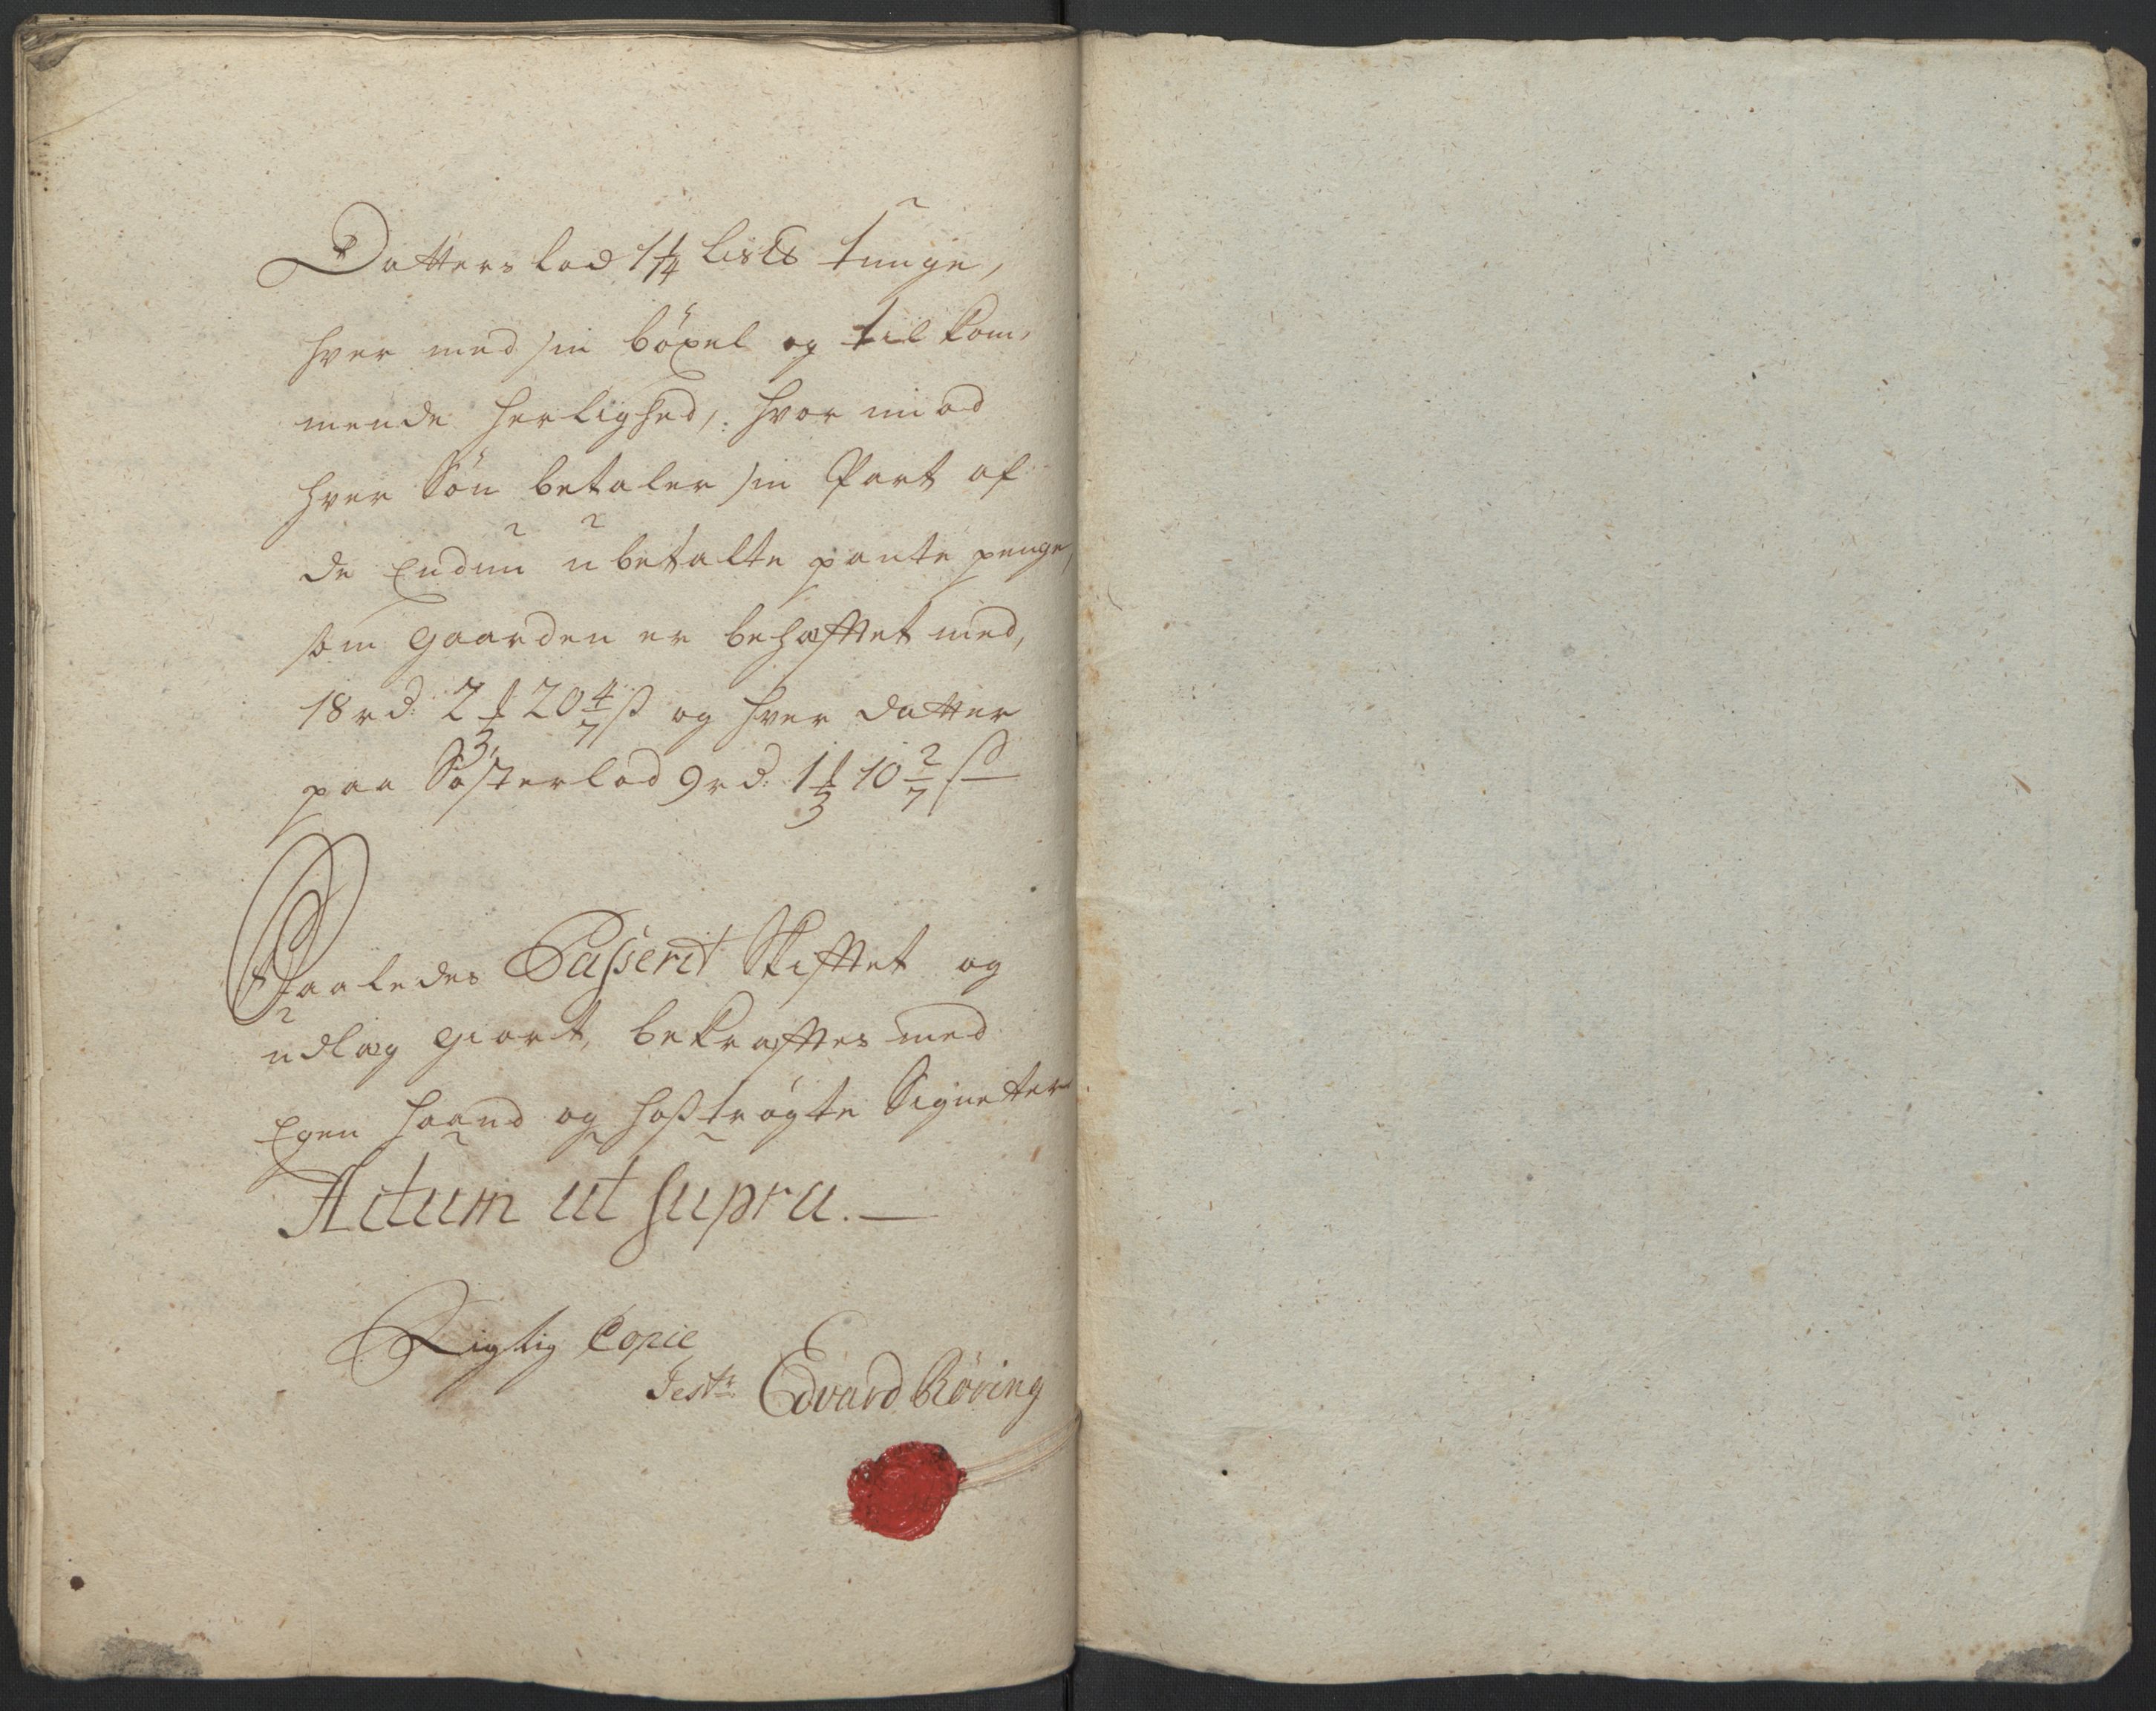 Datters lod 1 1/14 Lis℔ tunge,
hver med sin böxel og tilkom-
mende herlighed, hvor mod
hver Sön betaler sin Part af
de Endnu ubetalte pante penge,
som gaarden er behæfftet med,
18 rd: 2 20 4/7 ß og hver datter
paa Sösterlod 9 rd: 1 10 2/7 ß
Saaledes Passerit Skifftet og
udlæg giort, bekræfftes med
Egen haand og hoßtrögte Signetter
Actum ut supra. —
Rigtig Copie
Test: Edvard Röring